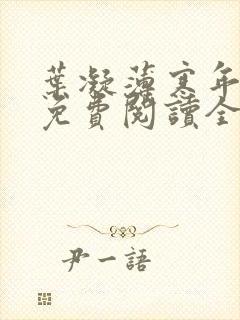 葉凝薄寒年
免費閱讀全
尹一語